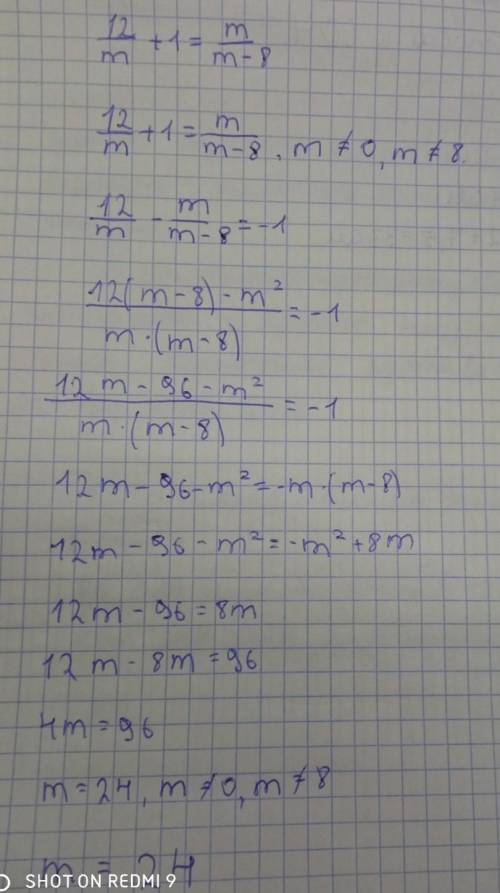 12/m + 1 = m/m-8
12/m + 1 = m/m-8, m ≠ 0, m ≠ 8.
12/m - m/m-8 = -1
12(m-8) - m²/m·(m-8) = -1
12m - 96 - m²/m·(m-8) = -1
12m - 96 - m² = -m·(m-8)
12m - 96 - m² = -m² + 8m
12m - 96 = 8m
12m - 8m = 96
4m = 96
m = 24, m ≠ 0, m ≠ 8
m = 24
SHOT ON REDMI 9